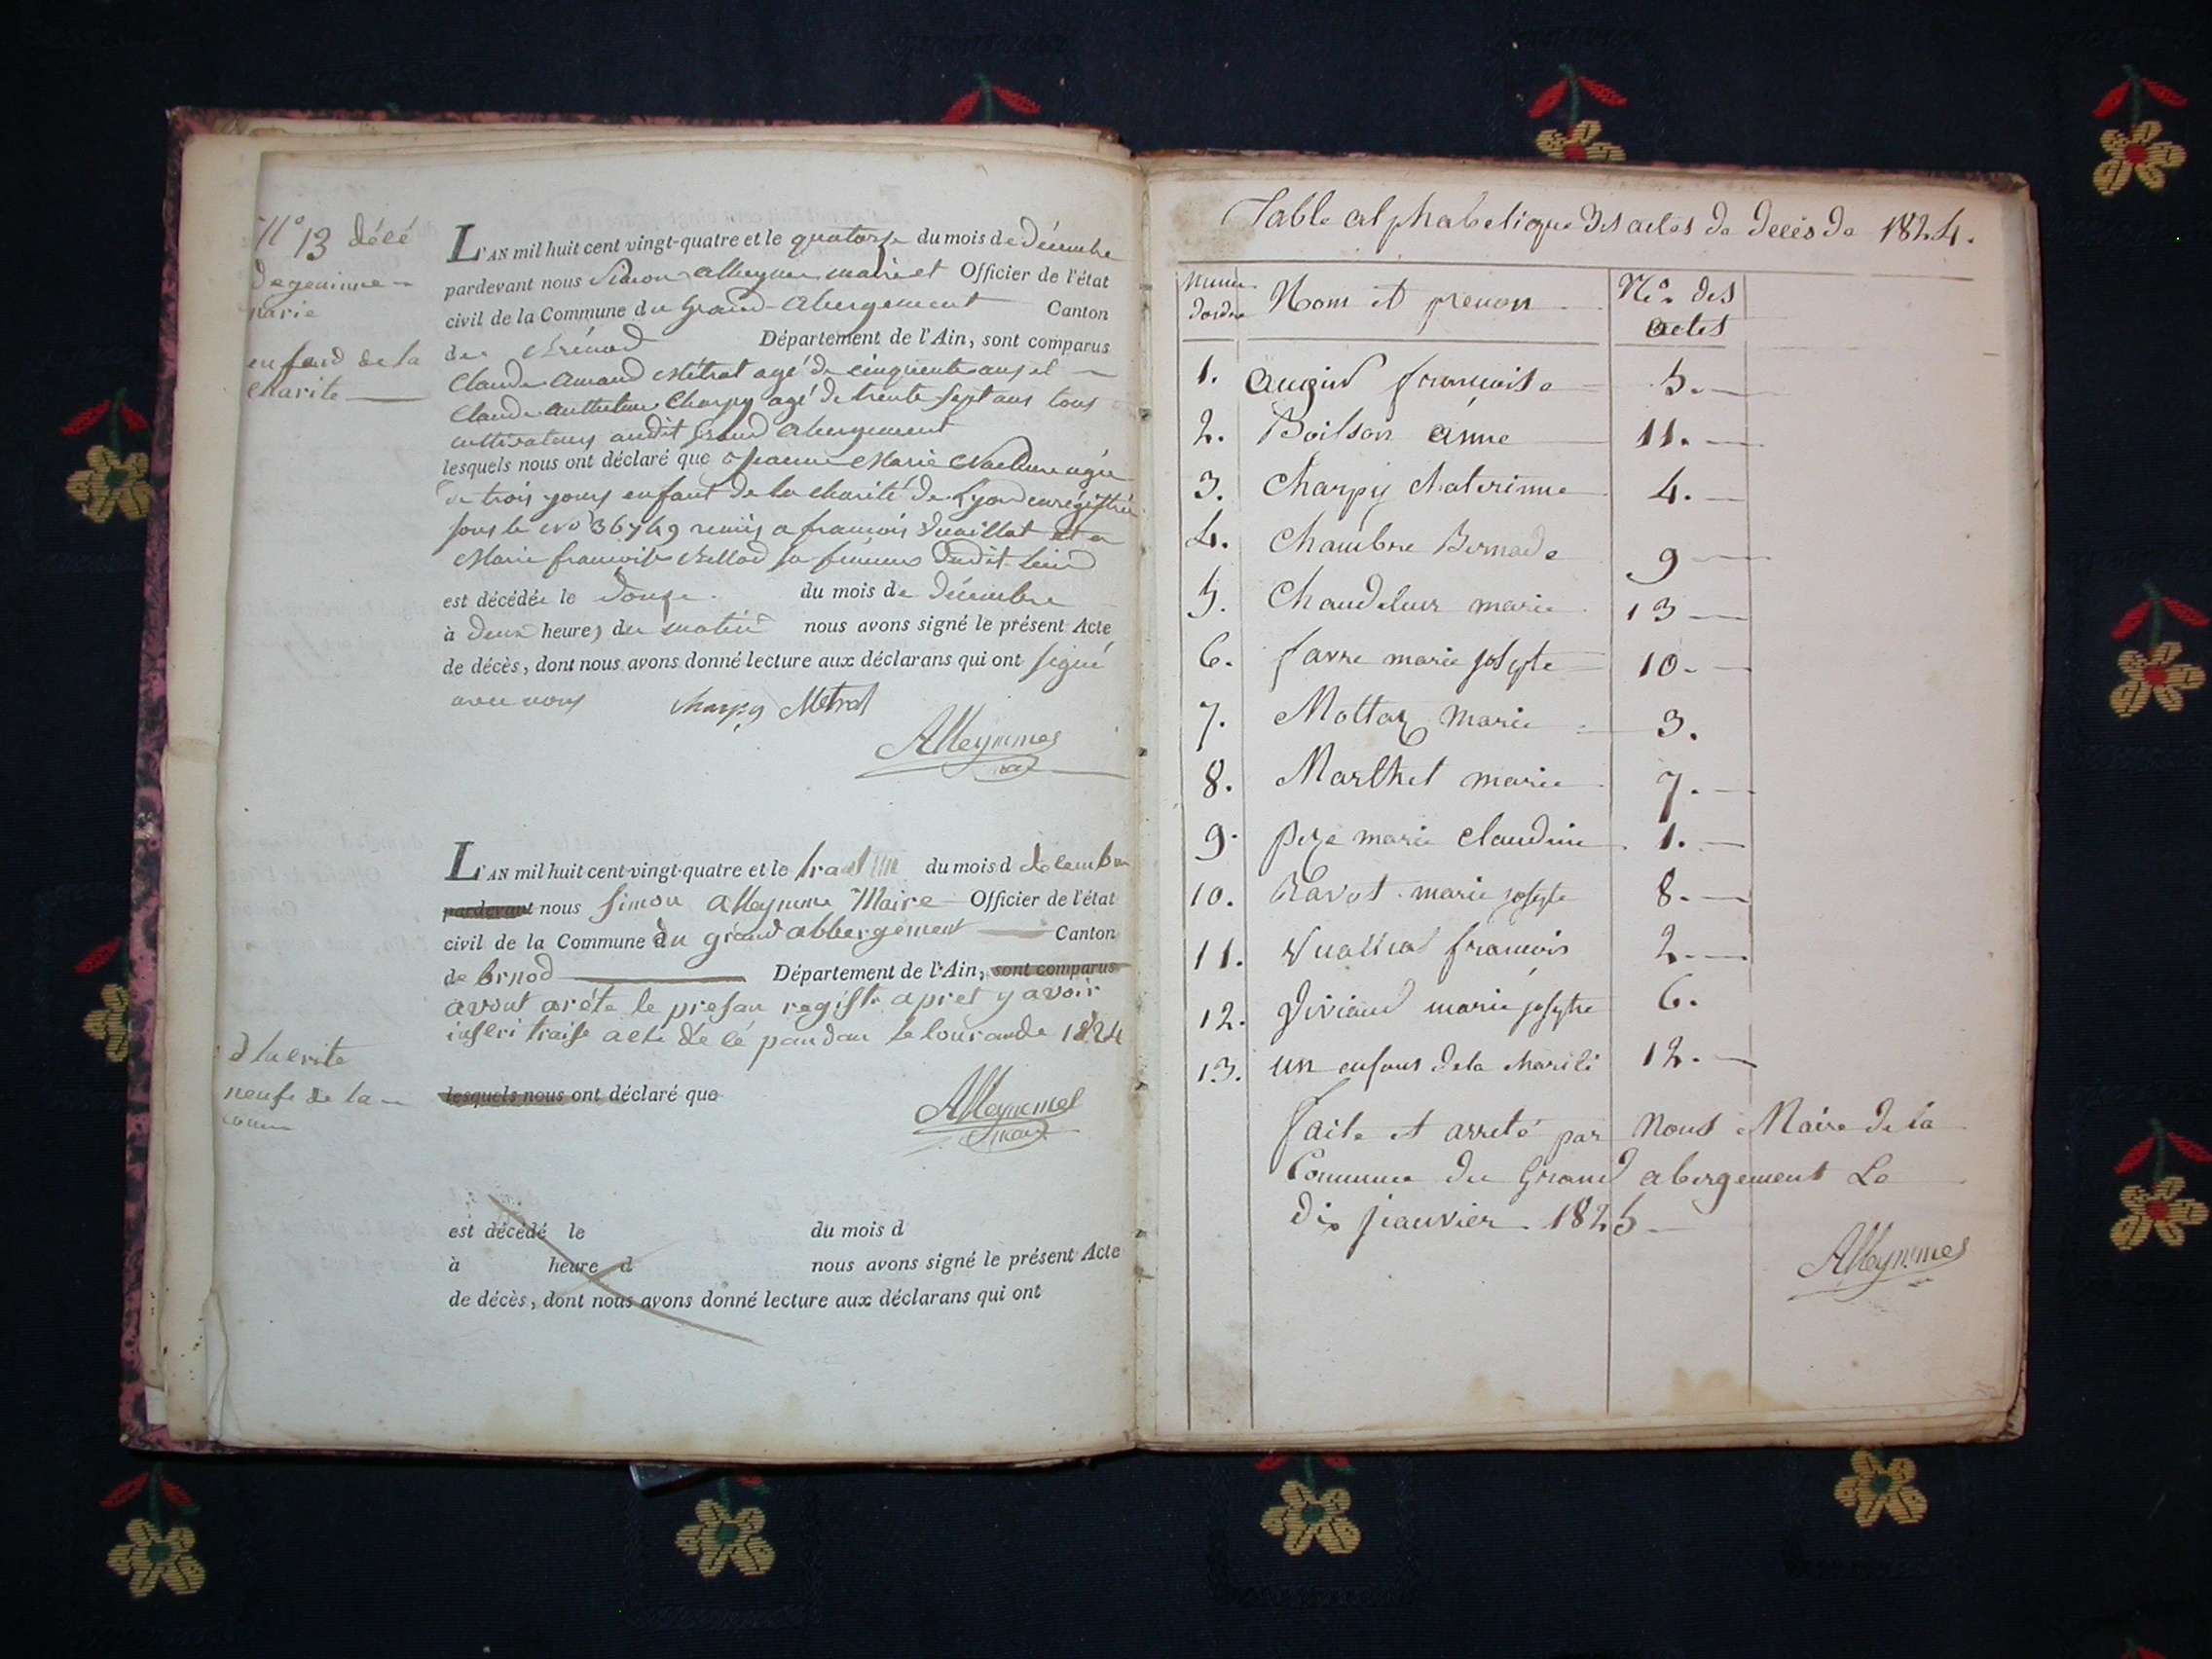 N° 13 décé
de jeanne
marie
enfand de la
charite
L'AN mil huit cent vingt-quatre et le quatorze du mois de décembre
pardevant nous Simon alleyme maire et Officier de l'état
civil de la Commune du Grand-abergement Canton
de Brénod Département de l'Ain, sont comparus
Claude Amand Métrat agé de cinquente ans et
Claude Anthelme Charpy agé de trente sept ans tous
cultivateurs audit Grand abergement
lesquels nous ont déclaré que jeanne Marie agée
de trois jours enfant de la charité de Lyon enrégistrée
sous le No 36749 remis a francois Vuaillat et a
Marie francoise sa femme dudit lieu
est décédée le douze du mois de décembre
à deux heures du matin nous avons signé le présent Acte
de décès, dont nous avons donné lecture aux déclarans qui ont signé
avec nous Charpy Métrat
Alleymmes
L'AN mil huit cent vingt-quatre et le du mois d décembre
pardevant nous Simon Alleymme Maire Officier de l'état
civil de la Commune du grand abbergement Canton
de brnod Département de l'Ain, sont comparus
avont aréte le presan registr apret y avoir
inscri traise acte dé cé pandan le lourande 1824
lesquels nous ont déclaré que
Alleymmes
neufe de la
est décédé le du mois d
à heure d nous avons signé le présent Acte
de décès, dont nous avons donné lecture aux déclarans qui ont
Table alphabetique des actes de decés de 1824.
Numé Nom et prenon N°. des
dordre actes
1. Augiud francoise 5.
2. Boilson anne 11.
3. Charpy Chaterinne 4.
4. Chambre Bernade 9
5. Chaudeleur marie 13
6. favre marie josepte 10.
7. Mottaz Marie 3.
8. Marthet marie 7.
9. peze marie Claudine 1.
10. Ravot marie josepte 8.
11. Vuaillat francois 2.
12. Viviand marie josepte 6.
13. un enfant de la charité 12.
faite et arreté par Nous Maire de la
Commune du Grand abergement Le
dix janvier 1825
Alleymmes